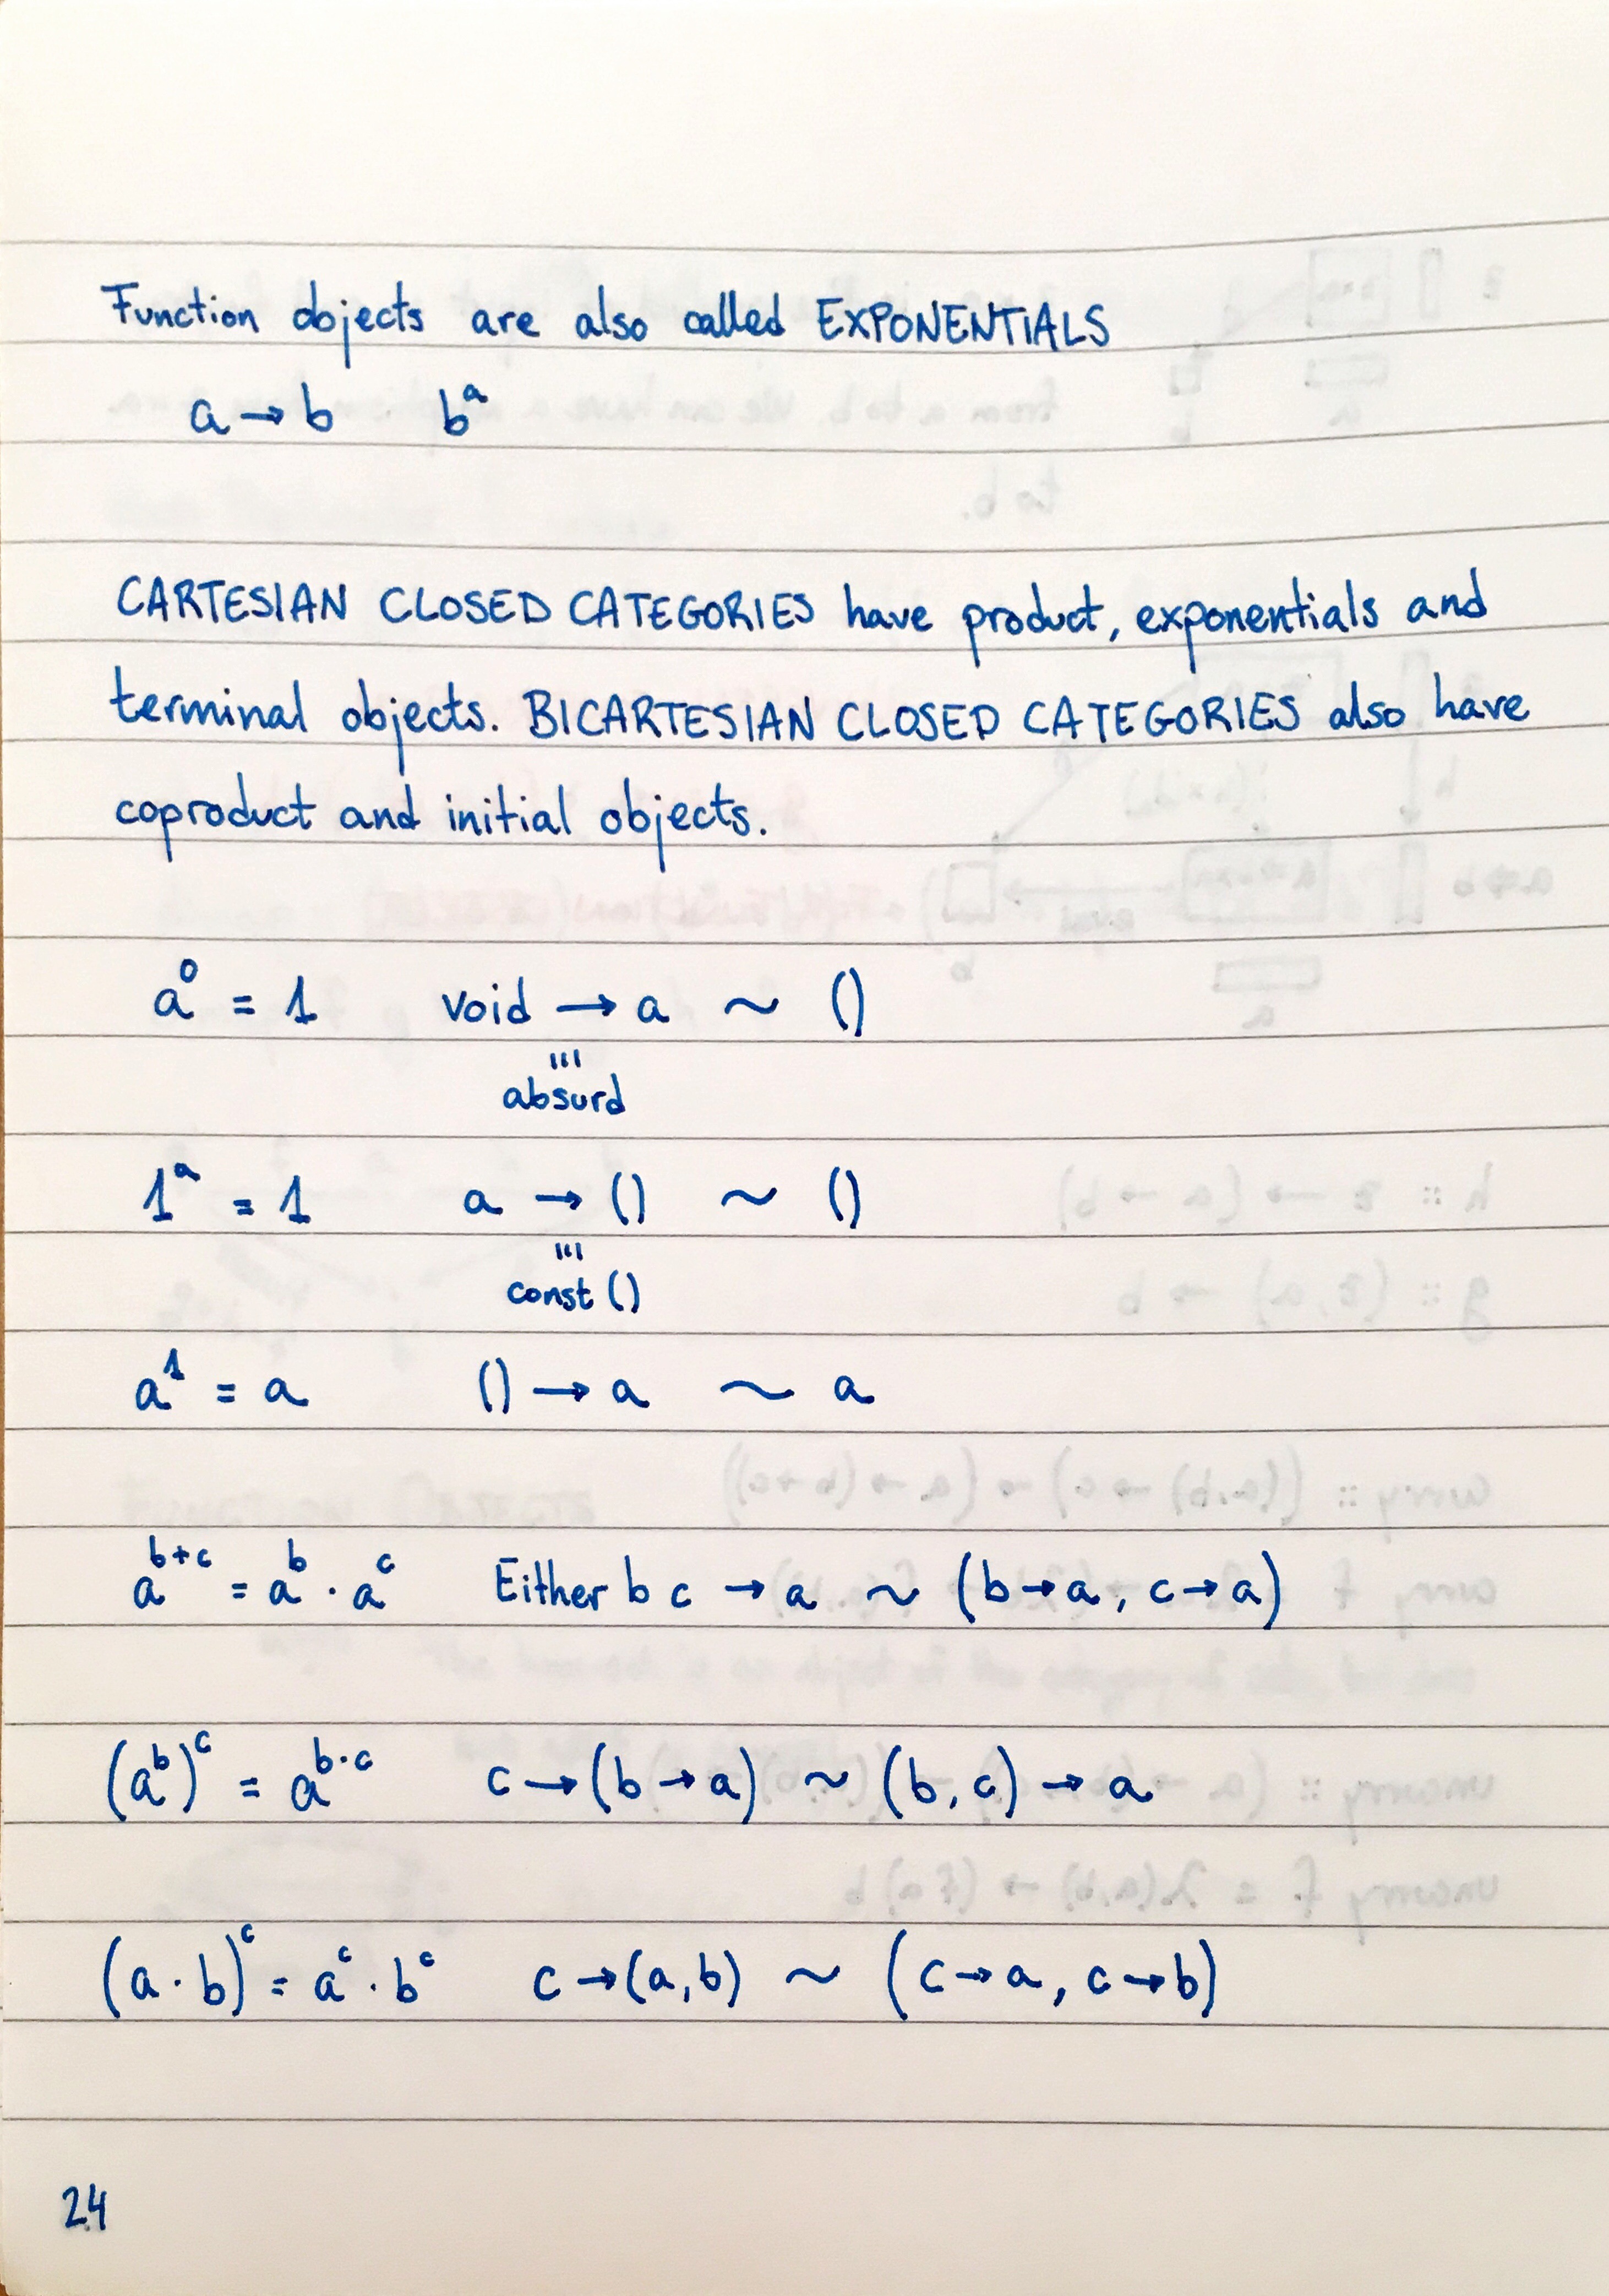 Function objects are also called EXPONENTIALS
a → b    bᵃ
CARTESIAN CLOSED CATEGORIES have product, exponentials and
terminal objects. BICARTESIAN CLOSED CATEGORIES also have
coproduct and initial objects.
a⁰ = 1    void → a ~ ()
ııı
absurd
1ᵃ = 1    a → () ~ ()
ııı
const ()
a¹ = a    () → a ~ a
aᵇ⁺ᶜ = aᵇ · aᶜ    Either b c → a ~ (b → a, c → a)
(aᵇ)ᶜ = aᵇ·ᶜ    c → (b → a) ~ (b, c) → a
(a · b)ᶜ = aᶜ · bᶜ    c → (a, b) ~ (c → a, c → b)
24